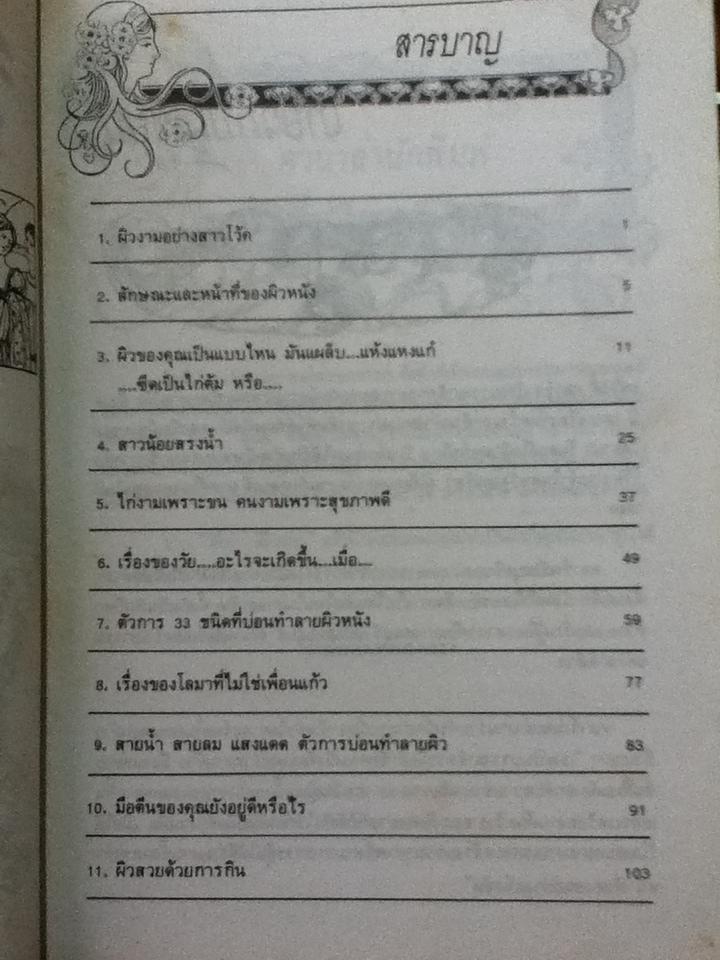 สารบาญ
1. ผิวงามอย่างสาวโว้ค 1
2. ลักษณะและหน้าที่ของผิวหนัง 5
3. ผิวของคุณเป็นแบบไหน มันแผล็บ....แห้งแหงแก๋ 11
....ซีดเป็นไก่ต้ม หรือ.....
4. สาวน้อยสรงน้ำ 25
5. ไก่งามเพราะขน คนงามเพราะสุขภาพดี 37
6. เรื่องของวัย.....อะไรจะเกิดขึ้น....เมื่อ....
49
7. ตัวการ 33 ชนิดที่บ่อนทำลายผิวหนัง 59
8. เรื่องของโลมาที่ไม่ใช่เพื่อนแก้ว 77
9. สายน้ำ สายลม แสงแดด ตัวการบ่อนทำลายผิว 83
10. มือตีนของคุณยังอยู่ดีหรือไร 91
11. ผิวสวยด้วยการกิน 103